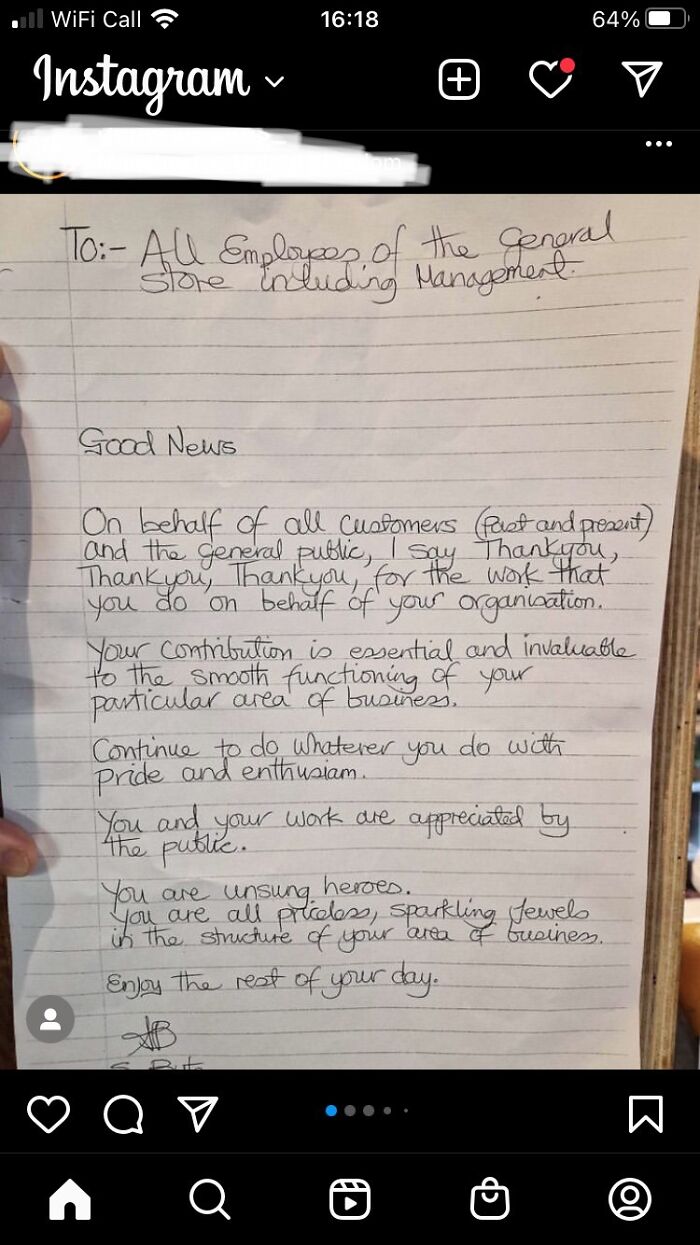 WiFi Call
16:18
64%
Instagram
To:- All Employees of the General
Store including Management.
Good News
On behalf of all customers (past and present)
and the general public, I say Thankyou,
Thankyou, Thankyou, for the work that
you do on behalf of your organisation.
Your contribution is essential and invaluable
to the smooth functioning of your
particular area of business.
Continue to do whatever you do with
pride and enthusiam.
You and your work are appreciated by
the public.
You are unsung heroes.
You are all priceless, sparkling Jewels
in the structure of your area of business.
Enjoy the rest of your day.